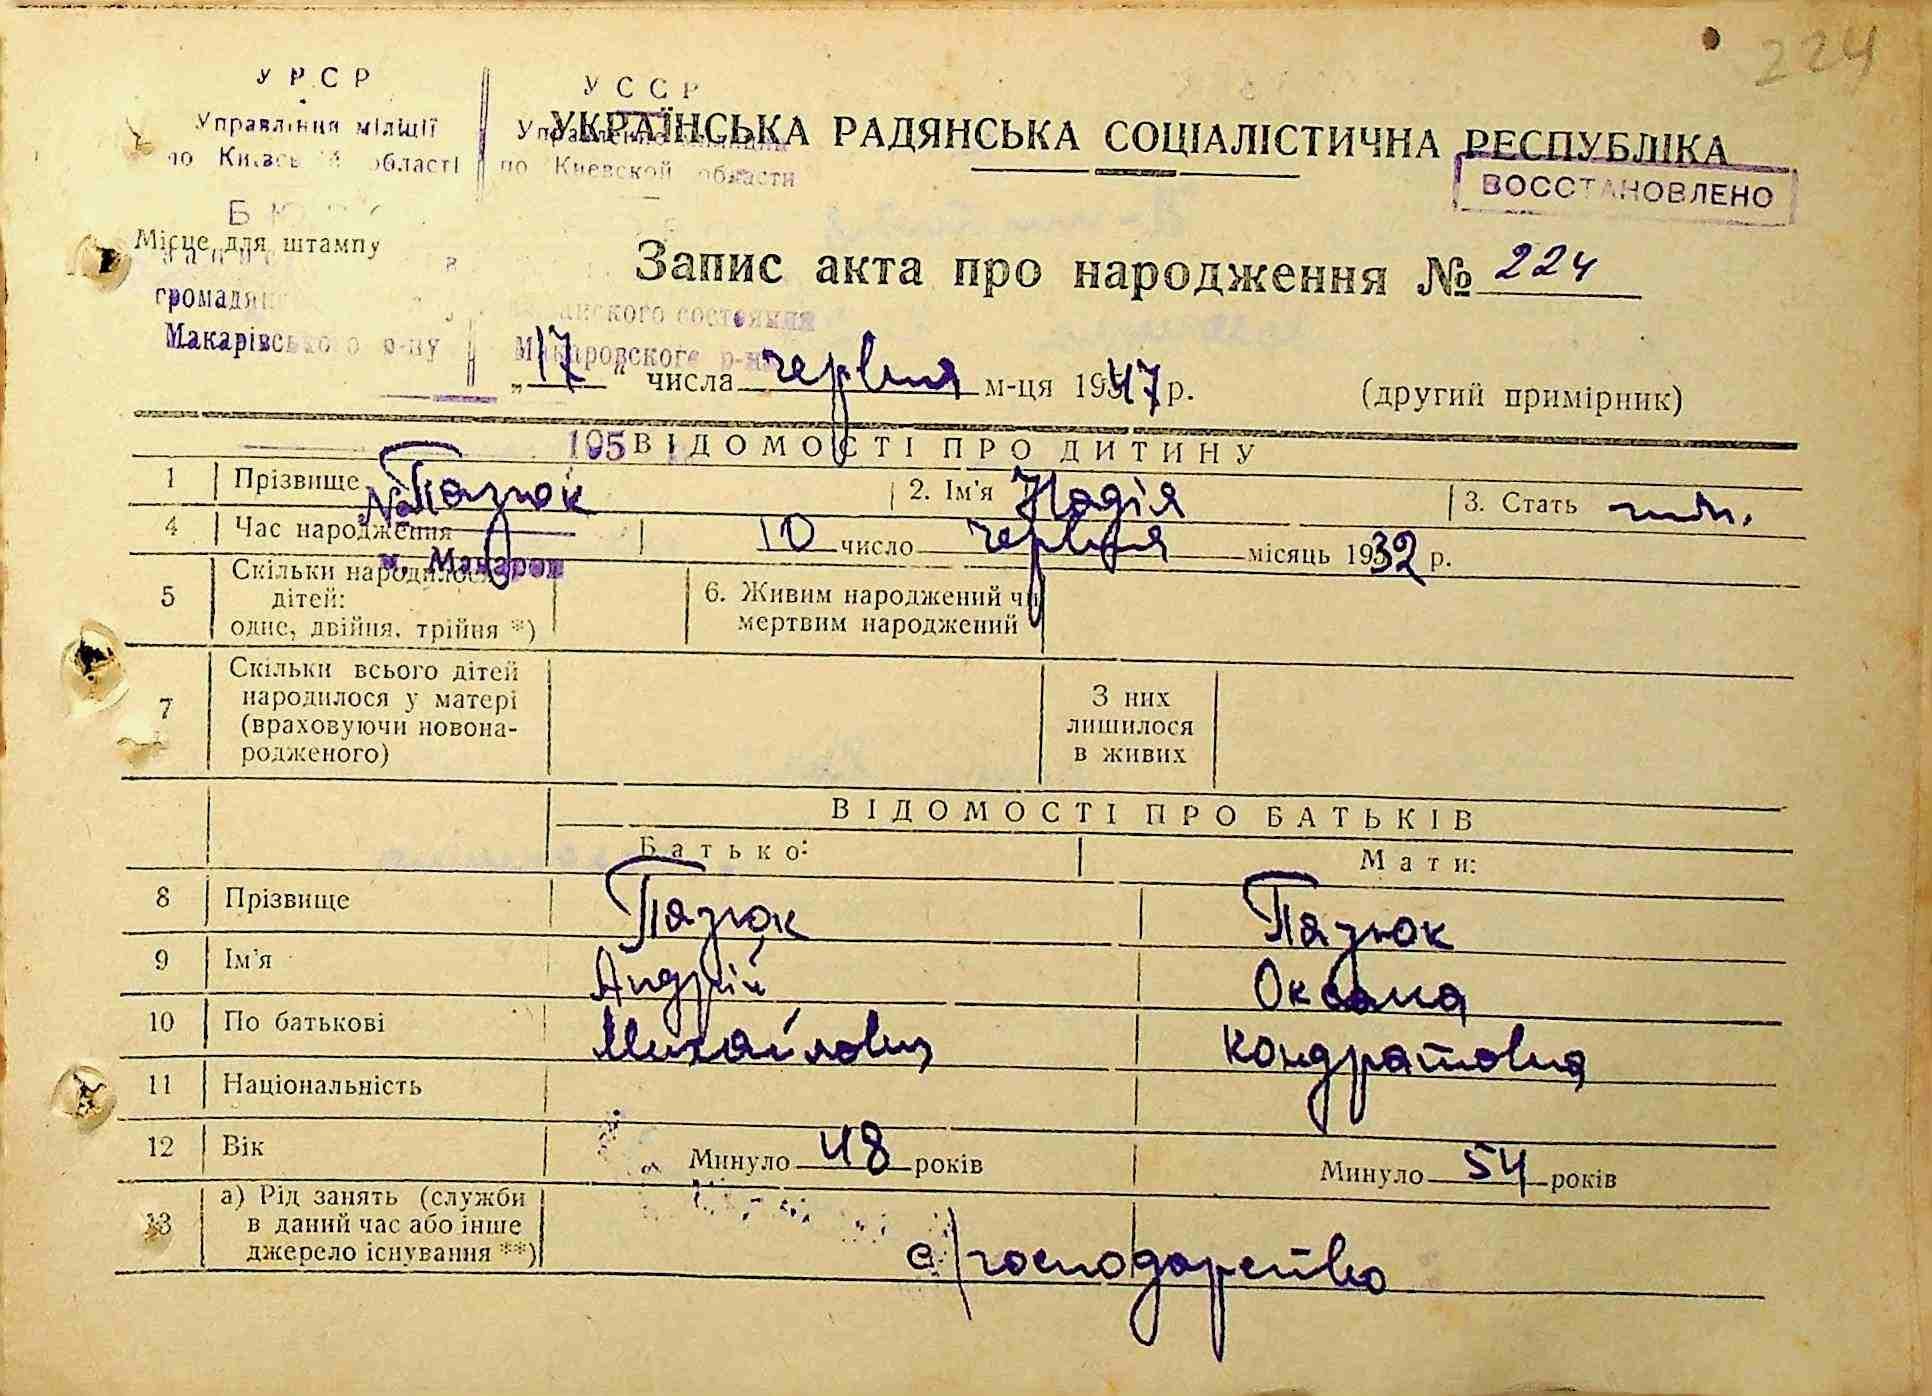 224
УРСР
УССР
Управління міліції
по Київській області
по Киевской области
УКРАЇНСЬКА РАДЯНСЬКА СОЦІАЛІСТИЧНА РЕСПУБЛІКА
ВОССТАНОВЛЕНО
Місце для штампу
Запис акта про народження № 224
Макарівського р-ну
Макаровского р-на
„17" числа червня м-ця 1947 р.
(другий примірник)
195
ВІДОМОСТІ ПРО ДИТИНУ
1 Прізвище Пазюк 2. Ім'я Надія 3. Стать
№
4 Час народження 10 число червня місяць 1932 р.
м. Макаров
5 Скільки народилося дітей: одне, двійня, трійня *)
6. Живим народжений чи мертвим народжений
7 Скільки всього дітей народилося у матері (враховуючи новонародженого)
З них лишилося в живих
ВІДОМОСТІ ПРО БАТЬКІВ
Батько: Мати:
8 Прізвище Пазюк Пазюк
9 Ім'я Андрій Оксана
10 По батькові Михайлович Кондратовна
11 Національність
12 Вік Минуло 48 років Минуло 54 років
13 а) Рід занять (служби в даний час або інше джерело існування **) с/господарство